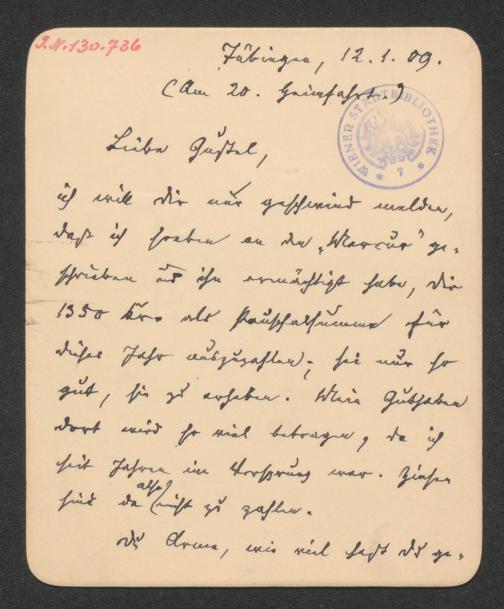 I.N. 130.736
Tübingen, 12.1.09.
(Am 20. Heimfahrt.)
WIENER STADTBIBLIOTHEK
7
Liebe Gustel,
ich will Dir nur geschwind melden,
daß ich soeben an den „Mercur" ge-
schrieben und ihn ermächtigt habe, Dir
1350 Kro als Pauschalsumme für
dieses Jahr auszuzahlen; sei nur so
gut, sie zu erheben. Mein Guthaben
dort wird so viel betragen, da ich
seit Jahren im Vorsprung war. Zinsen
sind da also nicht zu zahlen.
Du Arme, wie viel hast Du ge-